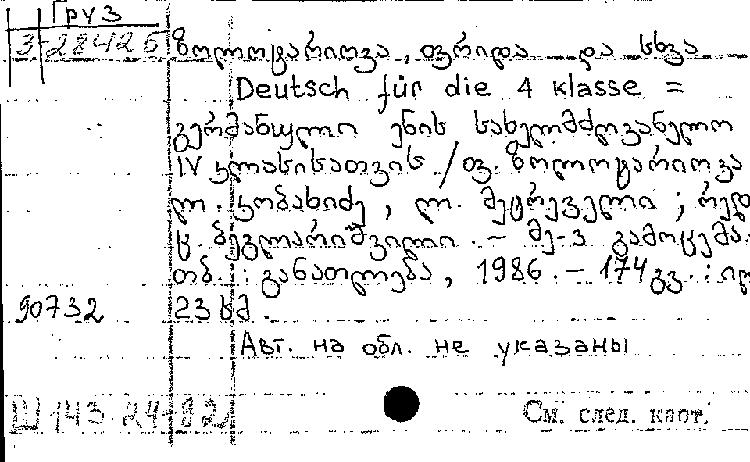 Груз
3-28426
ზოლოტარიოვა, ფრიდა და სხვა
Deutsch für die 4 klasse =
გერმანული ენის სახელმძღვანელო
IV კლასისათვის / ფ. ზოლოტარიოვა
ლ. კობახიძე, ლ. მეტრეველი ; რედ
ც. ბეგლარიშვილი. – მე-3 გამოცემა.
თბ. : განათლება, 1986. – 174 გვ. : ილ
90732 23 სმ.
Авт. на обл. не указаны
Ш 143.24-92
См. след. карт.